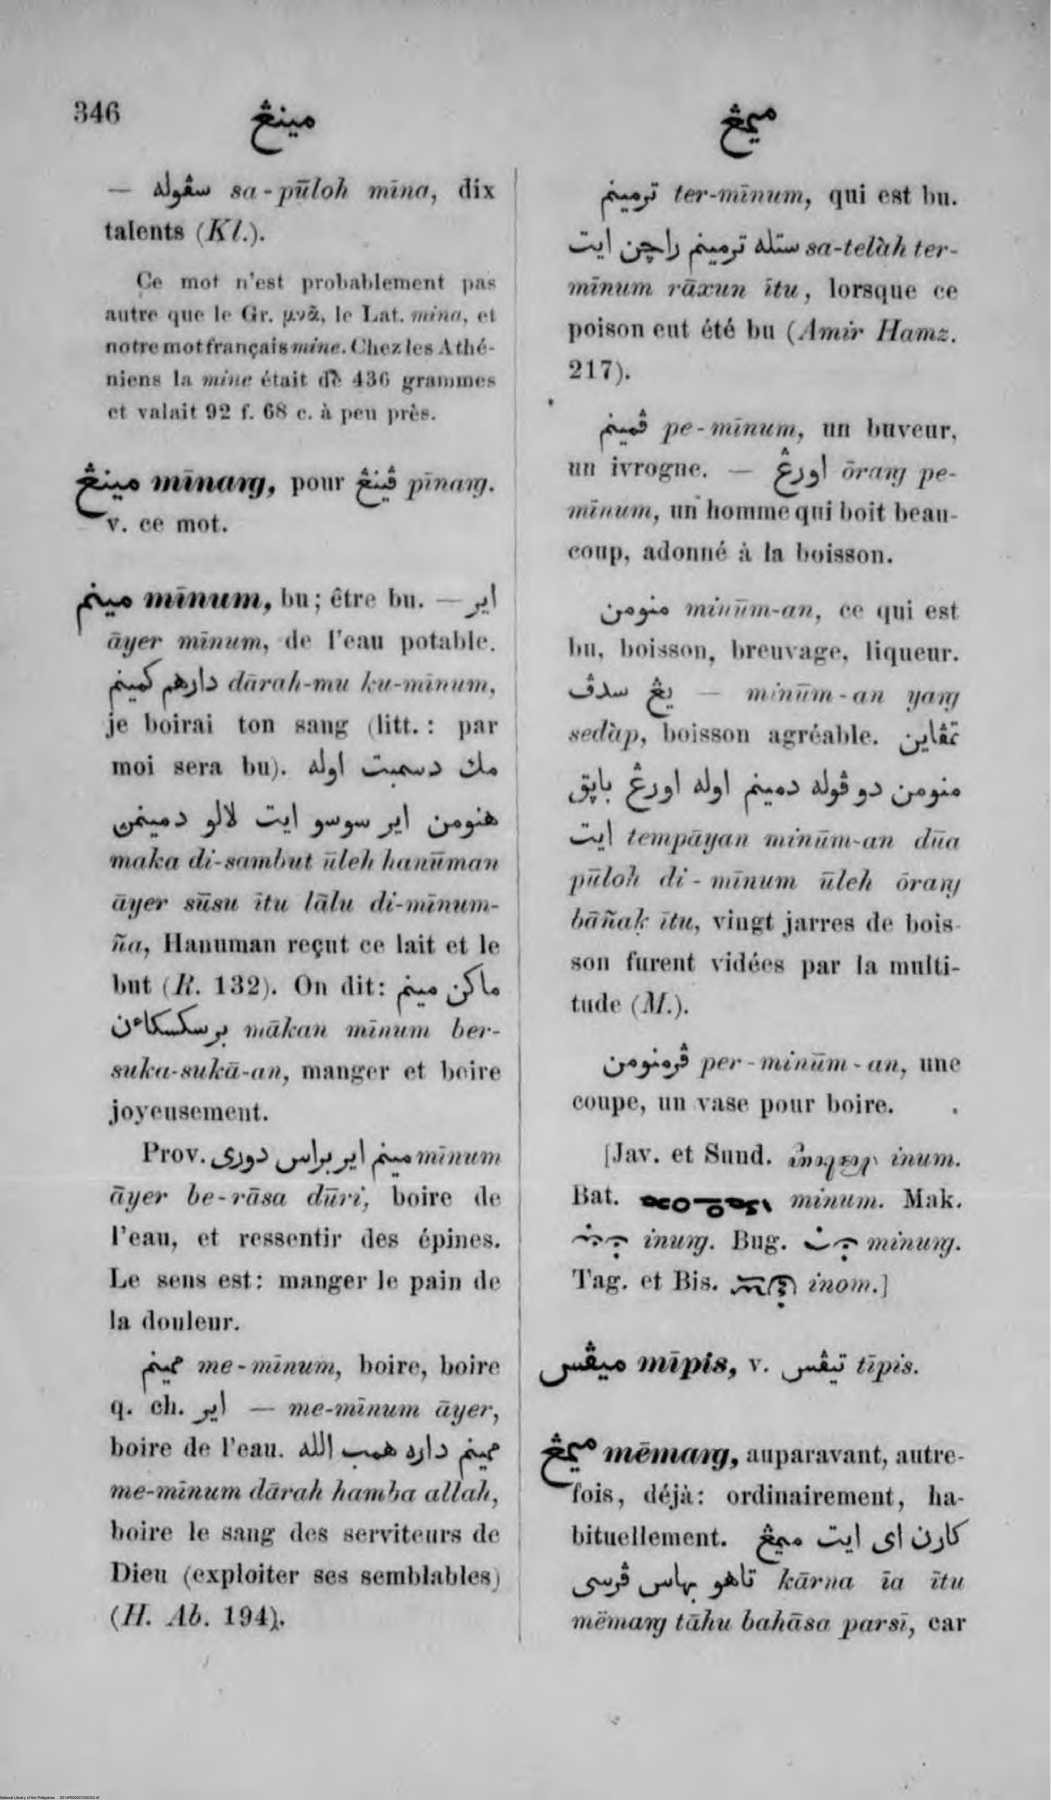 346
مينڠ
ميمڠ
— سڤوله sa-pūloh mīna, dix
talents (Kl.).
Ce mot n'est probablement pas
autre que le Gr. μνᾶ, le Lat. mina, et
notre mot français mine. Chez les Athé-
niens la mine était de 436 grammes
et valait 92 f. 68 c. à peu près.
مينڠ mīnaṃg, pour ڤينڠ pīnaṃg.
v. ce mot.
مينم mīnum, bu; être bu. — اير
āyer mīnum, de l'eau potable.
دارهم كمينم dārah-mu ku-mīnum,
je boirai ton sang (litt.: par
moi sera bu). مك دسمبت اوله
هنومن اير سوسو ايت لالو دمينمن
maka di-sambut ūleh hanūman
āyer sūsu ītu lālu di-mīnum-
ña, Hanuman reçut ce lait et le
but (R. 132). On dit: ماكن مينم
برسكسكاءن mākan mīnum ber-
suka-sukā-an, manger et boire
joyeusement.
Prov. مينم اير براس دورى mīnum
āyer be-rāsa dūri, boire de
l'eau, et ressentir des épines.
Le sens est: manger le pain de
la douleur.
ممينم me-mīnum, boire, boire
q. ch. اير — me-mīnum āyer,
boire de l'eau. ممينم داره همب الله
me-mīnum dārah hamba allah,
boire le sang des serviteurs de
Dieu (exploiter ses semblables)
(H. Ab. 194).
ترمينم ter-mīnum, qui est bu.
ستله ترمينم راچن ايت sa-telàh ter-
mīnum rāxun ītu, lorsque ce
poison eut été bu (Amir Hamz.
217).
ڤمينم pe-mīnum, un buveur,
un ivrogne. — اورڠ ōraṃg pe-
mīnum, un homme qui boit beau-
coup, adonné à la boisson.
منومن minūm-an, ce qui est
bu, boisson, breuvage, liqueur.
يڠ سدڤ — minūm-an yaṃg
sedàp, boisson agréable. تمڤاين
منومن دو ڤوله دمينم اوله اورڠ باڽق
ايت tempāyan minūm-an dūa
pūloh di-mīnum ūleh ōraṃg
bāñaḳ ītu, vingt jarres de bois-
son furent vidées par la multi-
tude (M.).
ڤرمنومن per-minūm-an, une
coupe, un vase pour boire.
[Jav. et Sund. inum.
Bat. minum. Mak.
inuṃg. Bug. minuṃg.
Tag. et Bis. inom.]
ميڤس mīpis, v. تيڤس tīpis.
ميمڠ mēmaṃg, auparavant, autre-
fois, déjà: ordinairement, ha-
bituellement. كارن اى ايت ميمڠ
تاهو بهاس ڤرسى kārna īa ītu
mēmaṃg tāhu bahāsa parsī, car